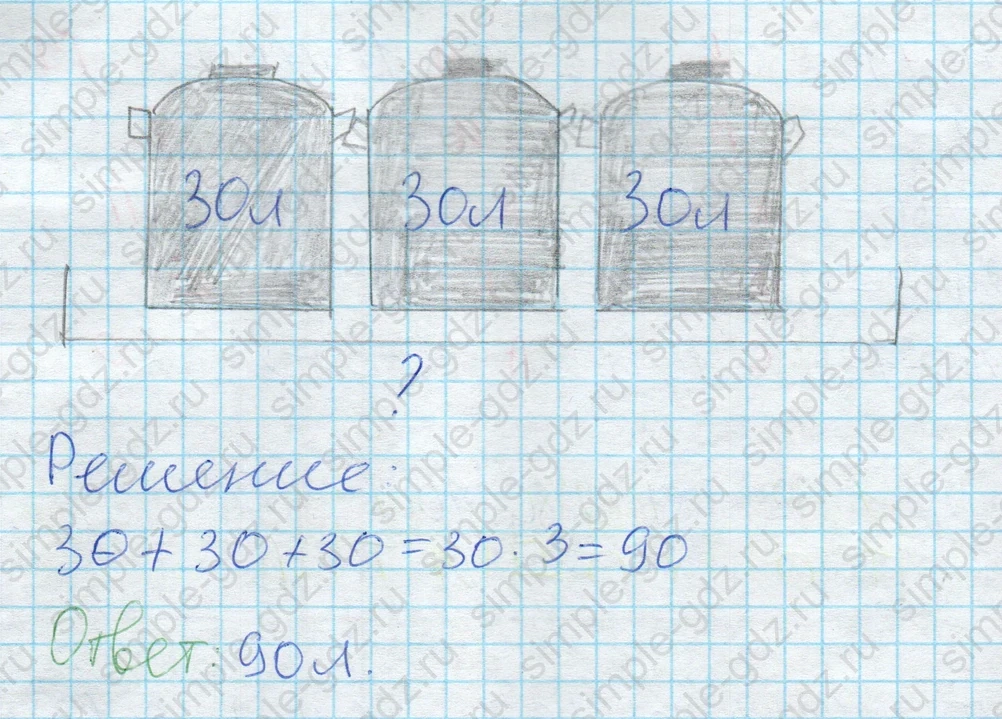 30л 30л 30л
?
Решение:
30 + 30 + 30 = 30 · 3 = 90
Ответ: 90 л.
simple-gdz.ru